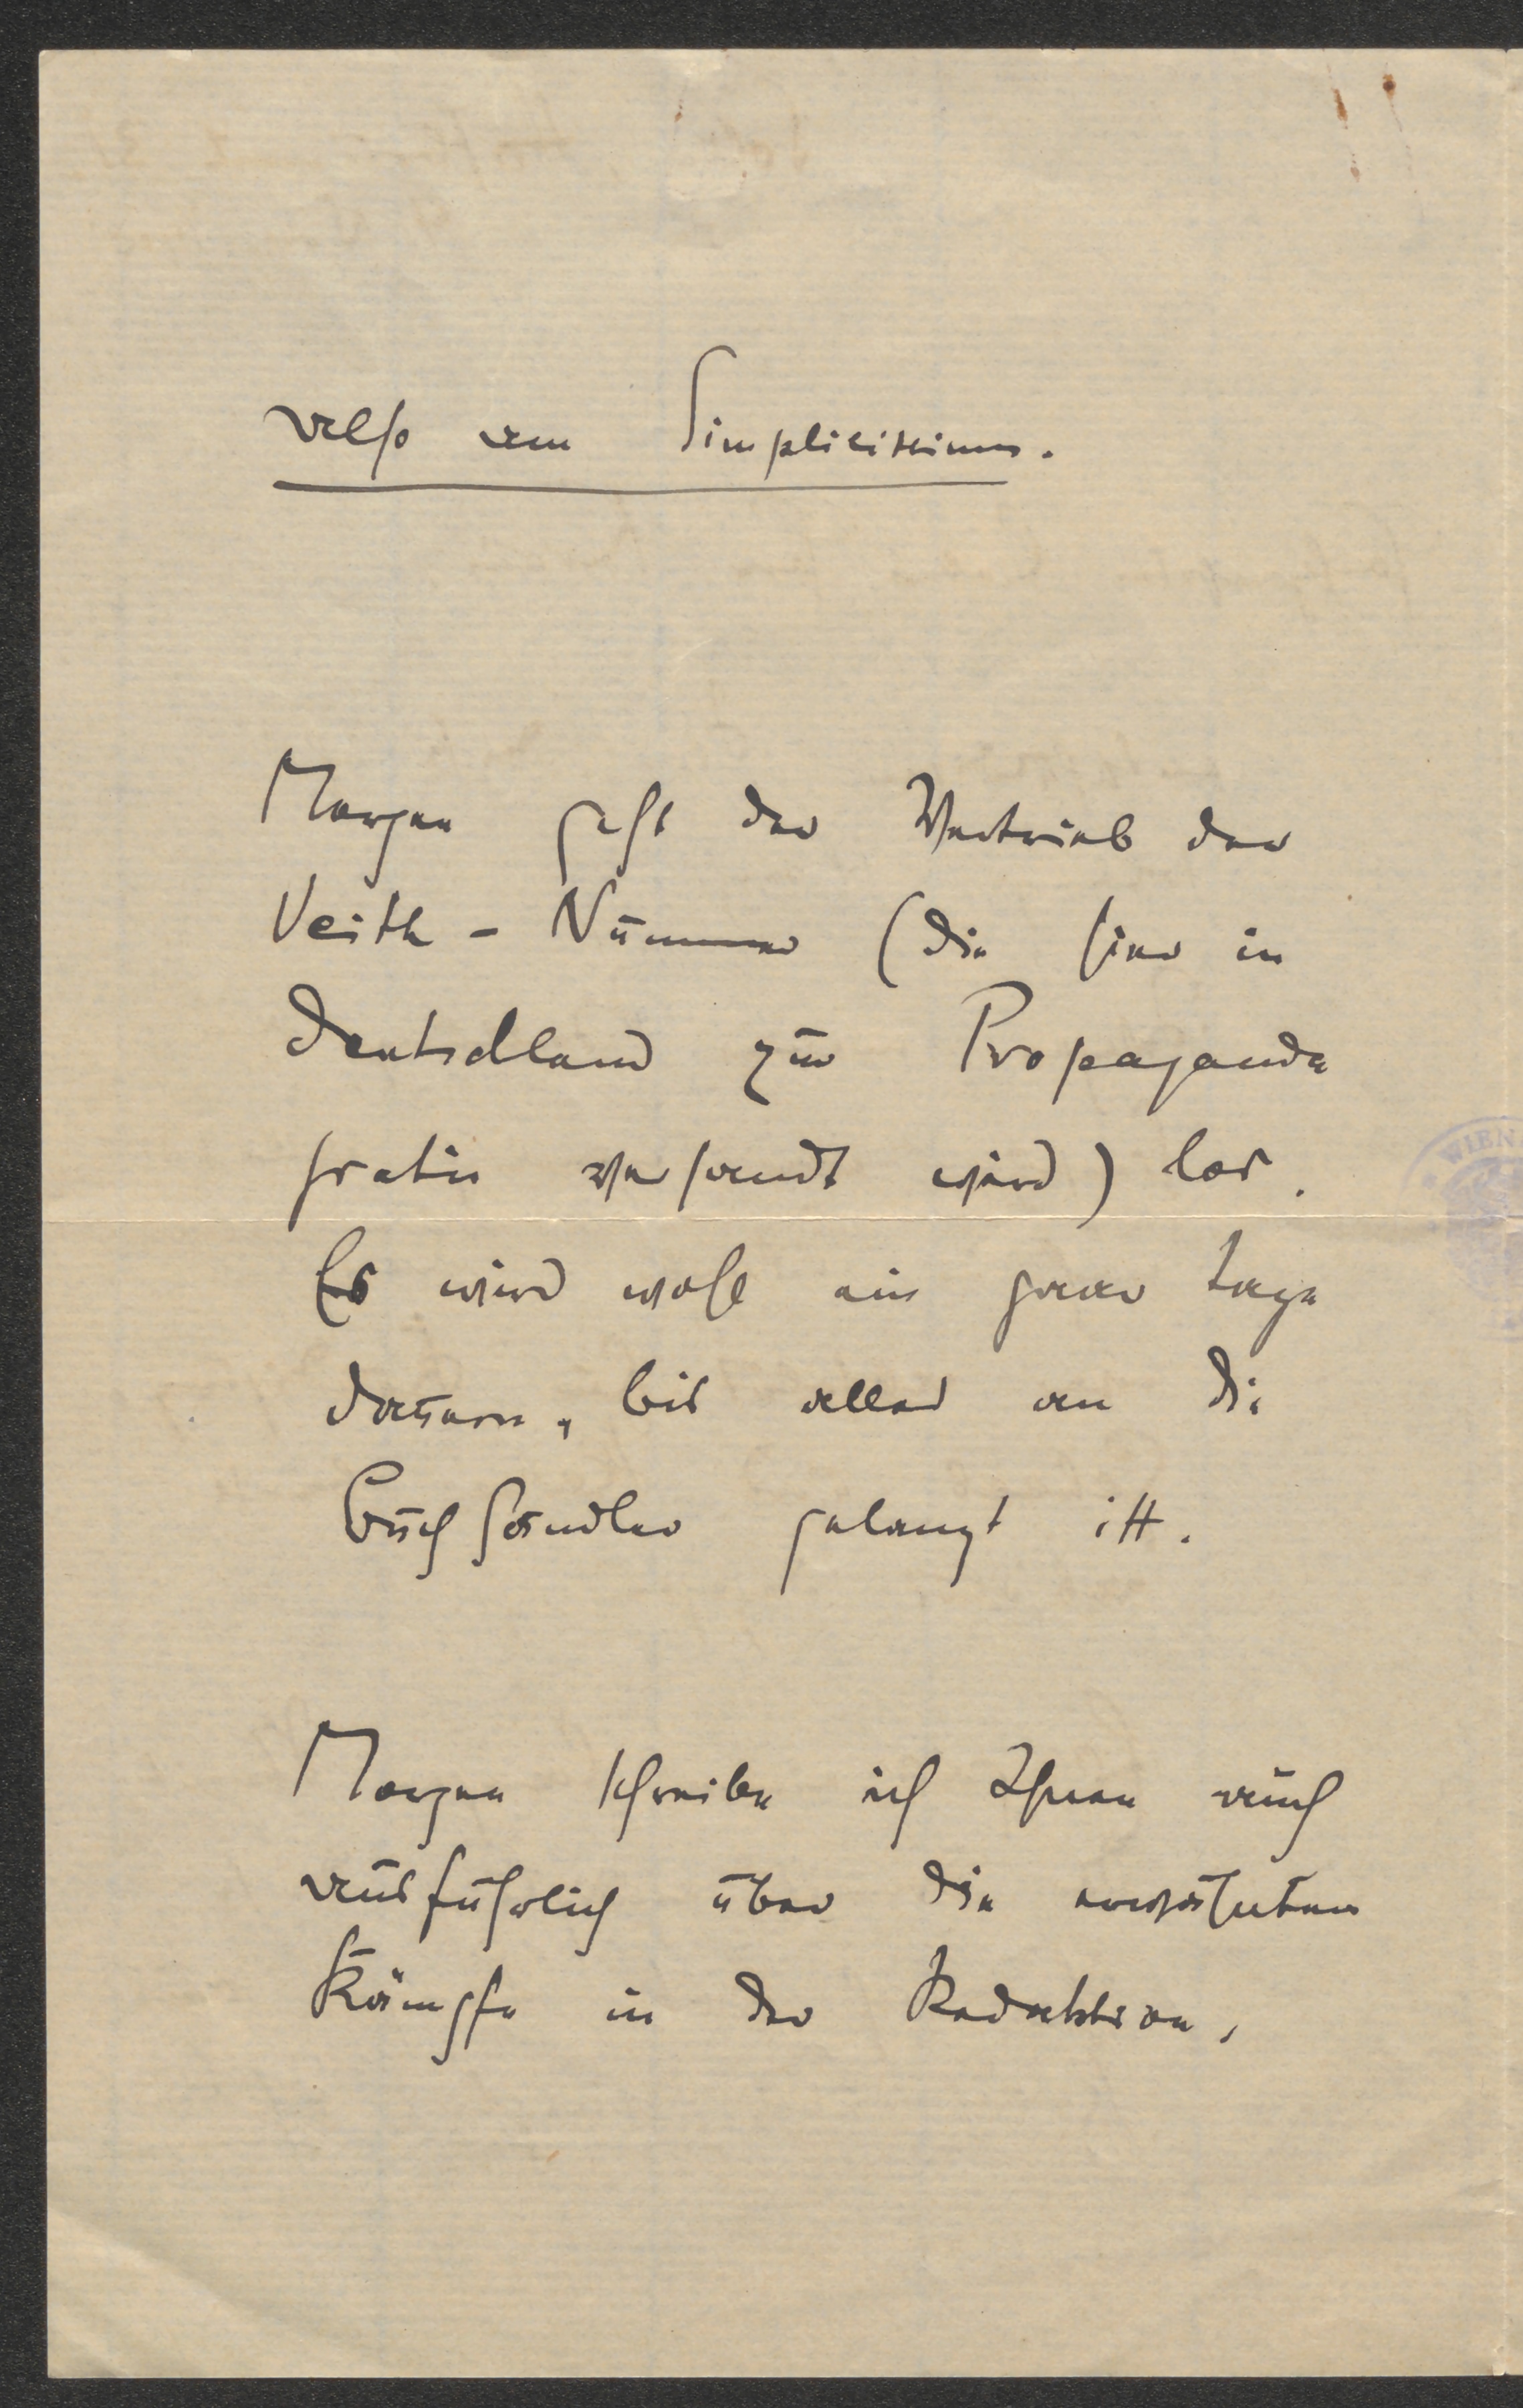 also am Simplicissimus.
Morgen geht der Vertrieb der
Veith-Nummer (die hier in
Deutschland zur Propaganda
gratis versandt wird) los.
Es wird wohl ein paar Tage
dauern, bis alles an die
Buchhändler gelangt ist.
Morgen schreibe ich Ihnen auch
ausführlich über die erwähnten
Kämpfe in der Redaktion,
WIEN